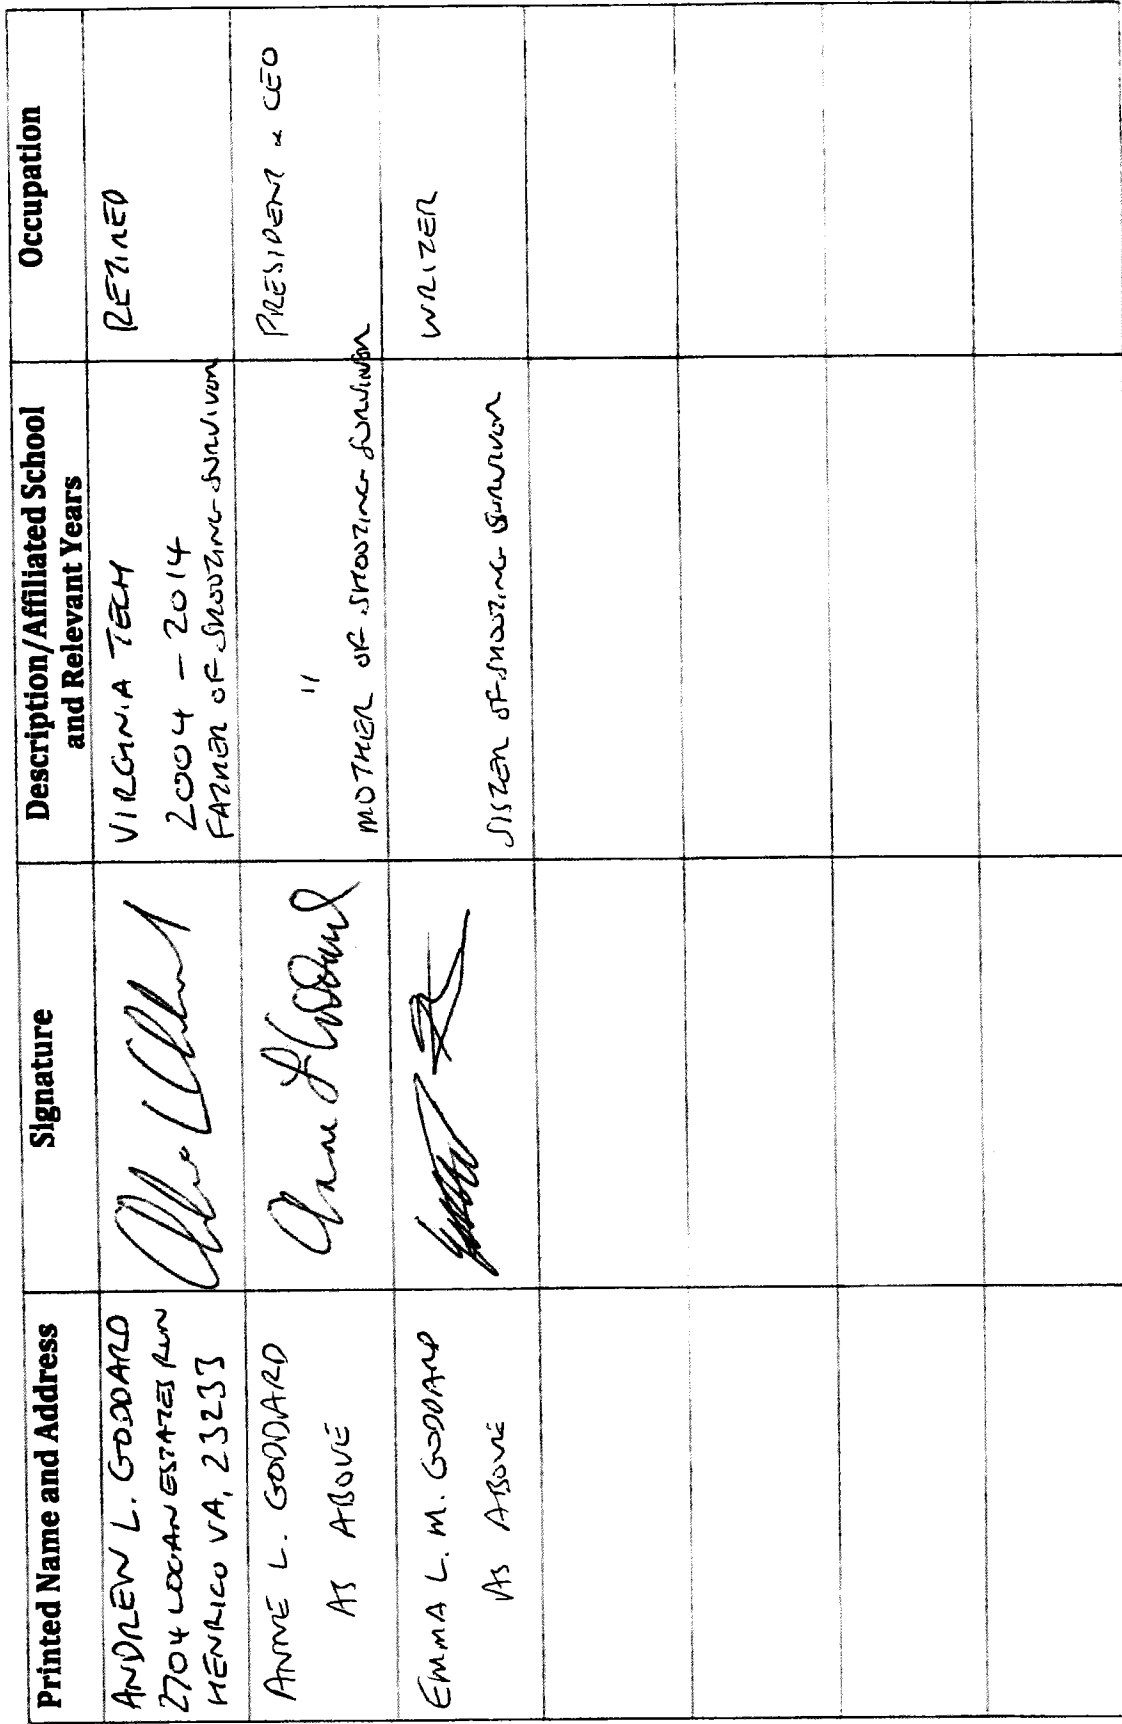 Printed Name and Address
Signature
Description/Affiliated School
and Relevant Years
Occupation
ANDREW L. GODDARD
2704 LOGAN ESTATES RUN
HENRICO VA, 23233
VIRGINIA TECH
2004 - 2014
FATHER OF SHOOTING SURVIVOR
RETIRED
ANNE L. GODDARD
AS ABOVE
Anne L Goddard
"
MOTHER OF SHOOTING SURVIVOR
PRESIDENT & CEO
EMMA L. M. GODDARD
AS ABOVE
SISTER OF SHOOTING SURVIVOR
WRITER